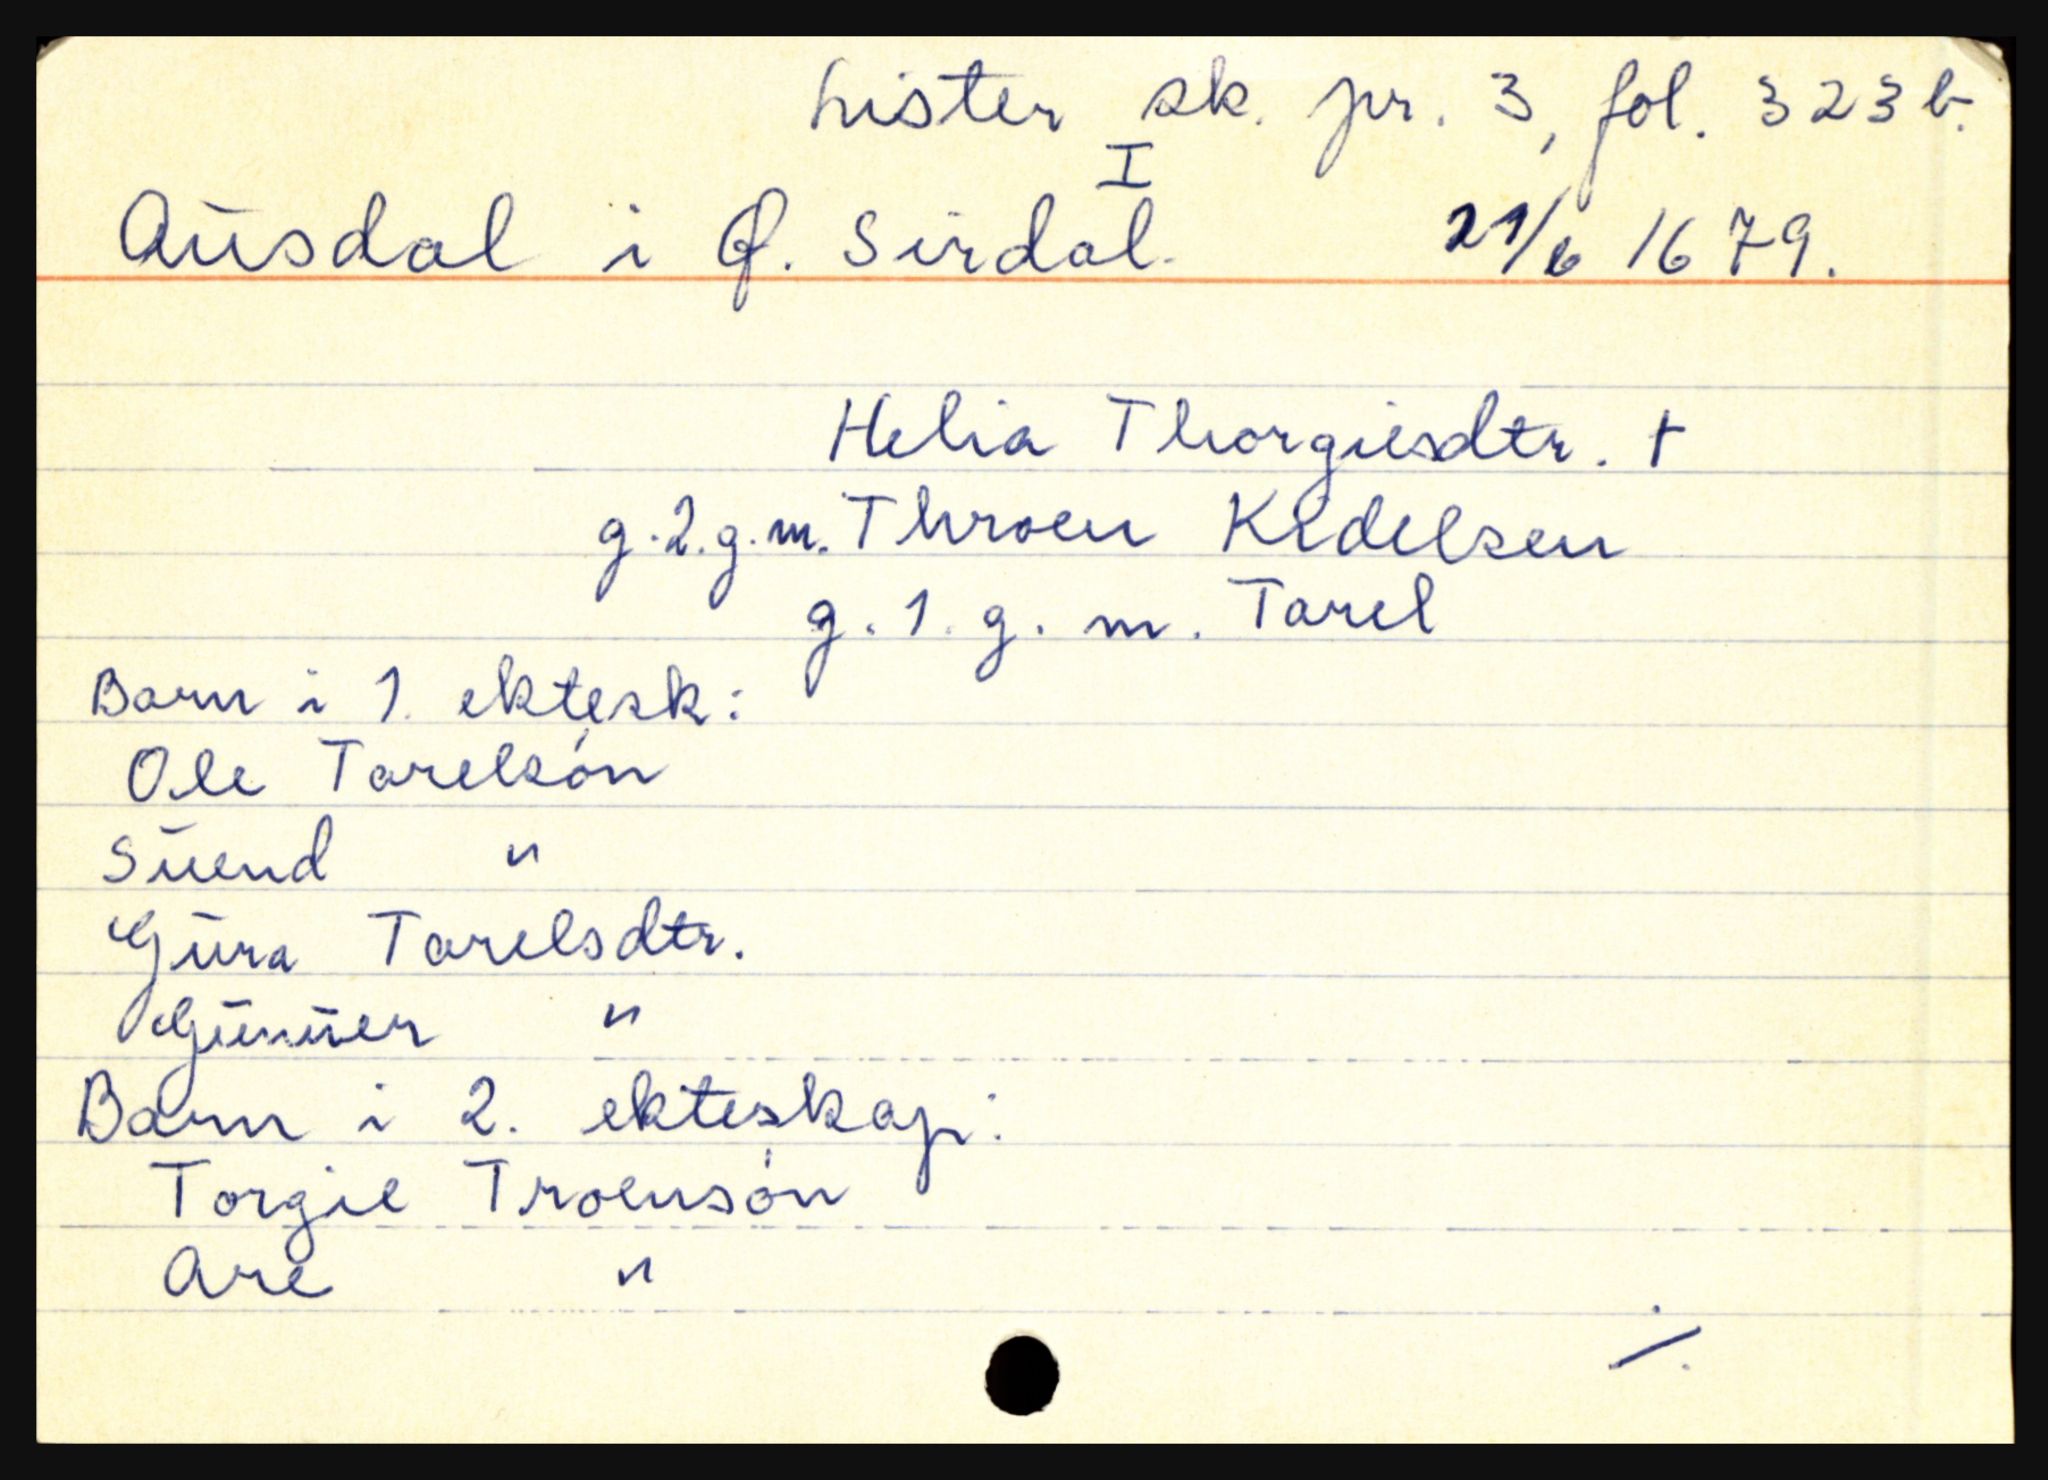 Lister sk. pr. 3, fol. 323 b.
I
Ausdal i Ø. Sirdal. 21/6 1679.
Helia Thorgiesdtr. †
g. 2. g. m. Throen Kedelsen
g. 1. g. m. Tarel
Barn i 1. ektesk:
Ole Tarelsón
Suend "
Gura Tarelsdtr.
Gunuer "
Barn i 2. ekteskap:
Torgie Troensón
Are "
./.